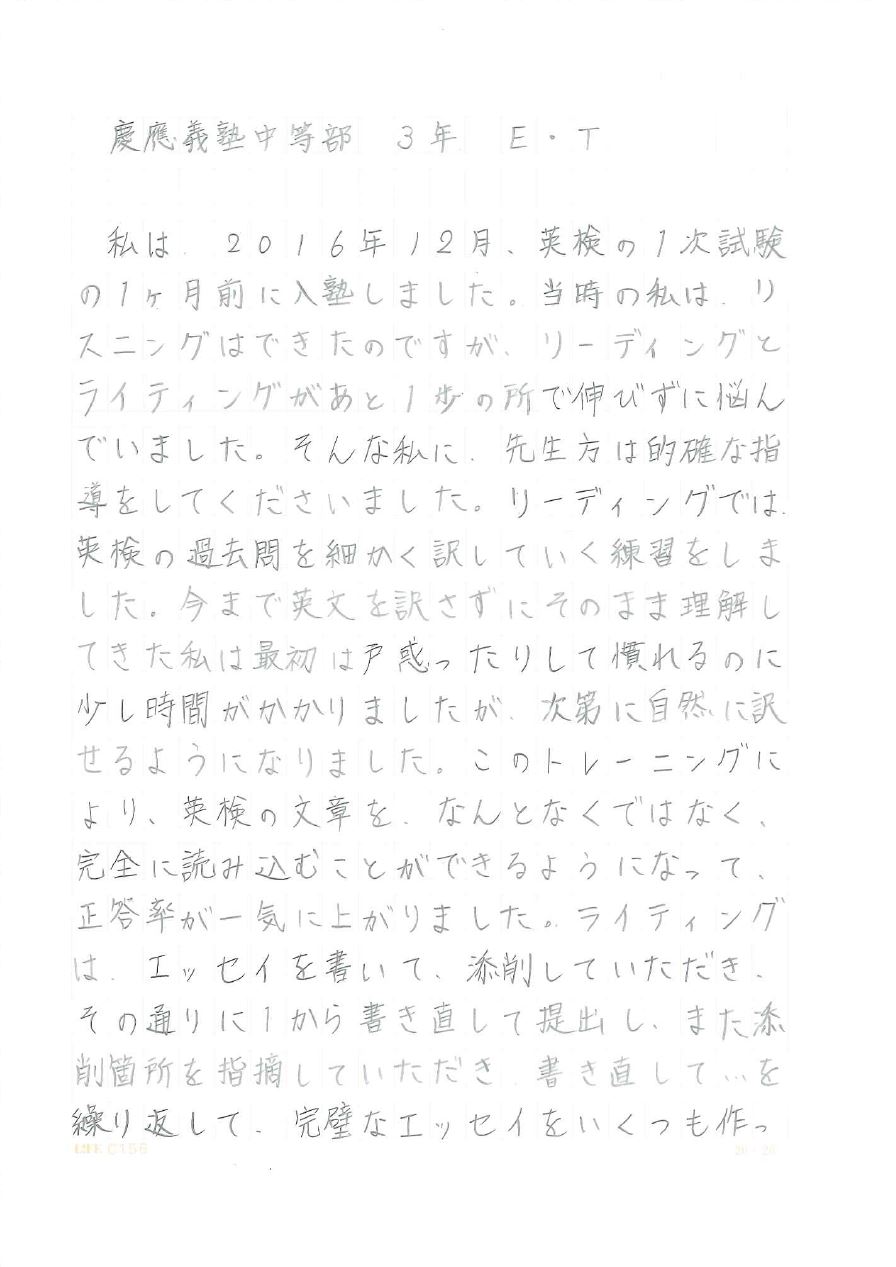 慶應義塾中等部　3年　E・T
私は、2016年12月、英検の1次試験
の1ヶ月前に入塾しました。当時の私は、リ
スニングはできたのですが、リーディングと
ライティングがあと1歩の所で伸びずに悩ん
でいました。そんな私に、先生方は的確な指
導をしてくださいました。リーディングでは、
英検の過去問を細かく訳していく練習をしま
した。今まで英文を訳さずにそのまま理解し
てきた私は最初は戸惑ったりして慣れるのに
少し時間がかかりましたが、次第に自然に訳
せるようになりました。このトレーニングに
より、英検の文章を、なんとなくではなく、
完全に読み込むことができるようになって、
正答率が一気に上がりました。ライティング
は、エッセイを書いて、添削していただき、
その通りに1から書き直して提出し、また添
削箇所を指摘していただき、書き直して…を
繰り返して、完璧なエッセイをいくつも作っ
LIFE C156
20×20